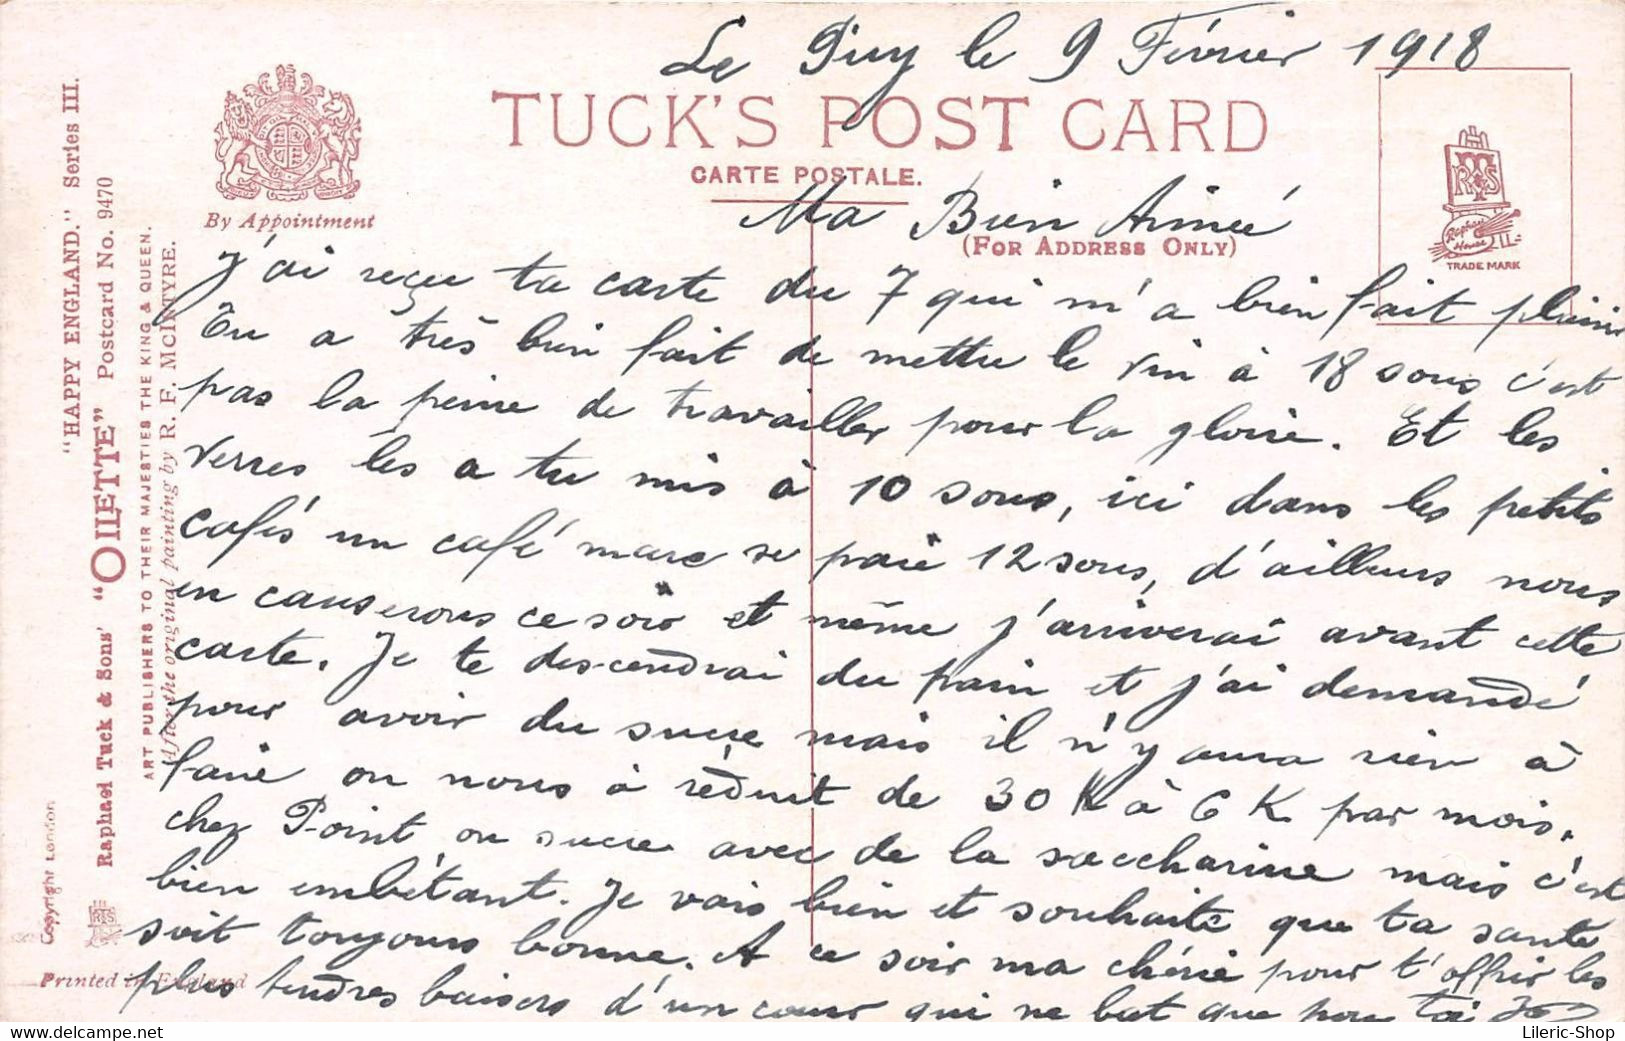 Le Puy le 9 Février 1918
TUCK'S POST CARD
CARTE POSTALE.
(FOR ADDRESS ONLY)
By Appointment
TRADE MARK
Ma Bien Aimée
j'ai reçu ta carte du 7 qui m'a bien fait plaisir
Tu a très bien fait de mettre le vin à 18 sous c'est
pas la peine de travailler pour la gloire. Et les
verres les a tu mis à 10 sous, ici dans les petits
cafés un café marc se paie 12 sous, d'ailleurs nous
en causerons ce soir et même j'arriverai avant cette
carte. Je te descendrai du pain et j'ai demandé
pour avoir du sucre mais il n'y aura rien à
faire on nous à réduit de 30 K à 6 K par mois.
chez Point on sucre avec de la saccharine mais c'est
bien embêtant. Je vais bien et souhaite que ta santé
soit toujours bonne. A ce soir ma chérie pour t'offrir les
plus tendres baisers d'un cœur qui ne bat que pour toi
"HAPPY ENGLAND." Series III.
Raphael Tuck & Sons' "OILETTE" Postcard No. 9470
ART PUBLISHERS TO THEIR MAJESTIES THE KING & QUEEN.
After the original painting by R. F. McINTYRE.
Copyright London
Printed in England
Lileric-Shop